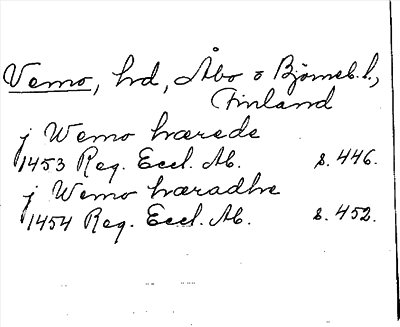 Vemo, hd, Åbo o Björneb. l.,
Finland
j Wemo hærede
1453 Reg. Eccl. Ab. s. 446.
j Wemo hæradhe
1454 Reg. Eccl. Ab. s. 452.